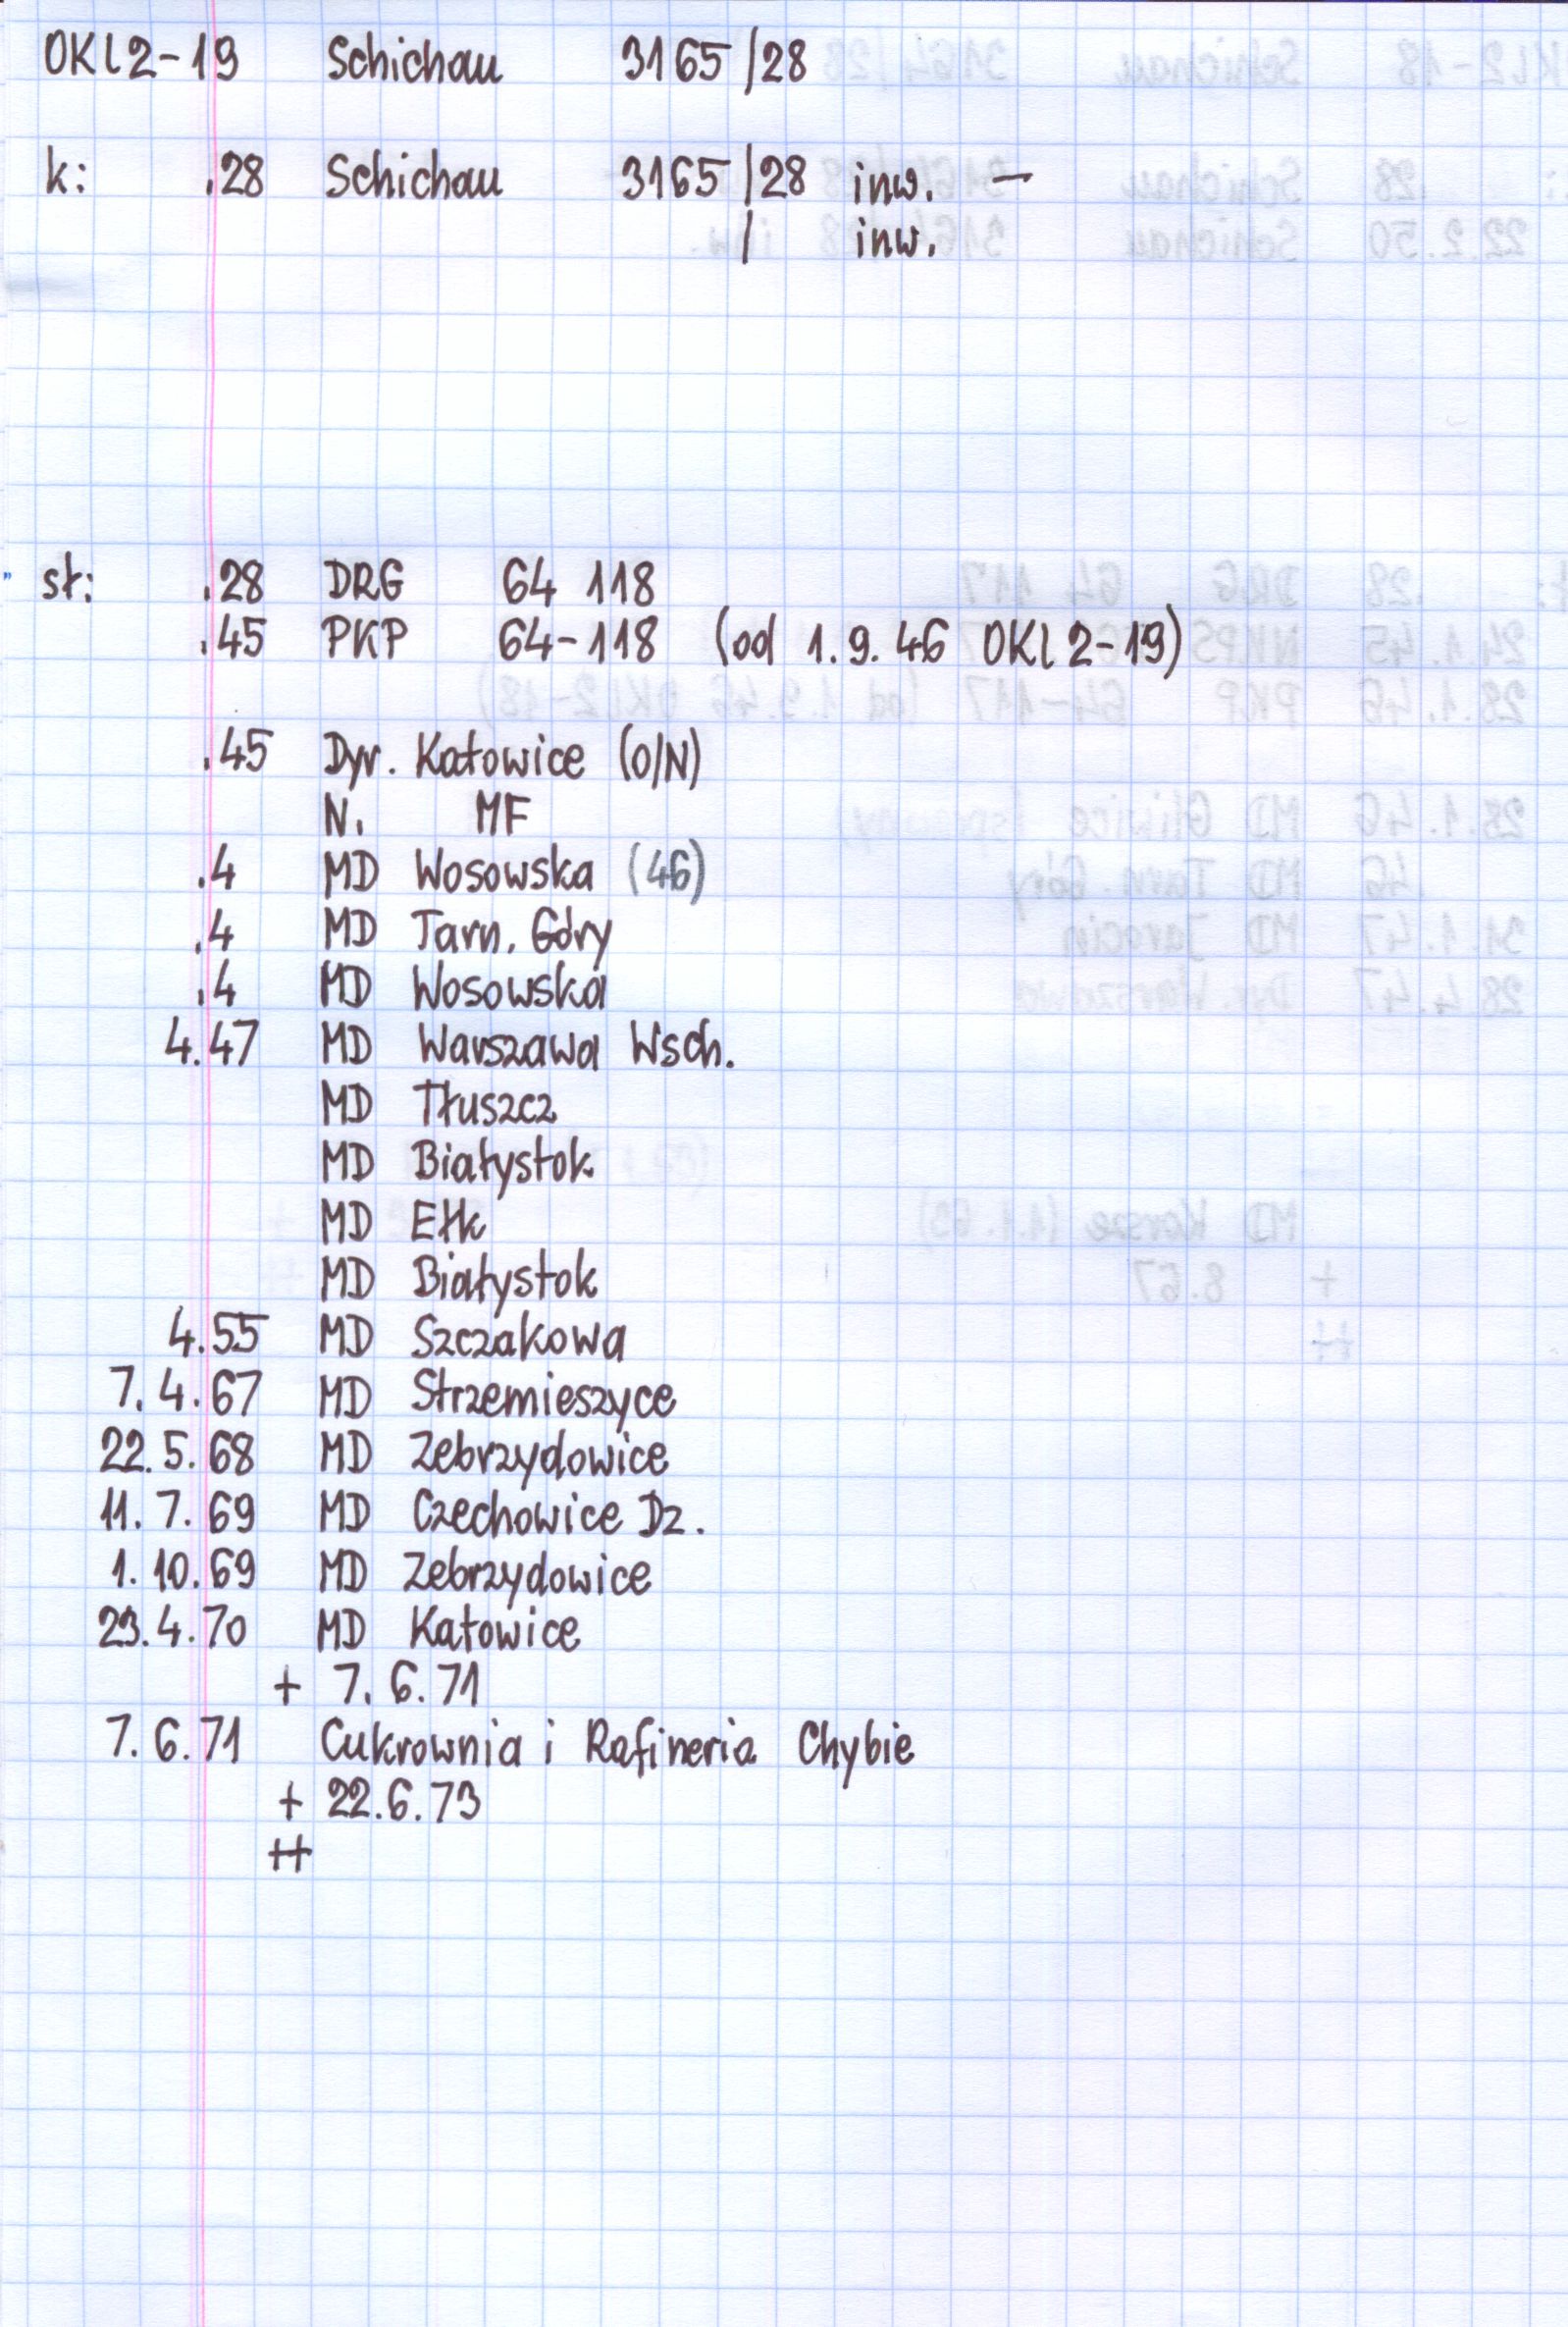 OKl2-19 Schichau 3165/28
k: .28 Schichau 3165/28 inw. -
/ inw.
st: .28 DRG 64 118
.45 PKP 64-118 (od 1.9.46 OKl2-19)
.45 Dyr. Katowice (O/N)
N. MF
.4 MD Wosowska (46)
.4 MD Tarn. Góry
.4 MD Wosowska
4.47 MD Warszawa Wsch.
MD Tłuszcz
MD Białystok
MD Ełk
MD Białystok
4.55 MD Szczakowa
7.4.67 MD Strzemieszyce
22.5.68 MD Zebrzydowice
11.7.69 MD Czechowice Dz.
1.10.69 MD Zebrzydowice
23.4.70 MD Katowice
+ 7.6.71
7.6.71 Cukrownia i Rafineria Chybie
+ 22.6.73
++